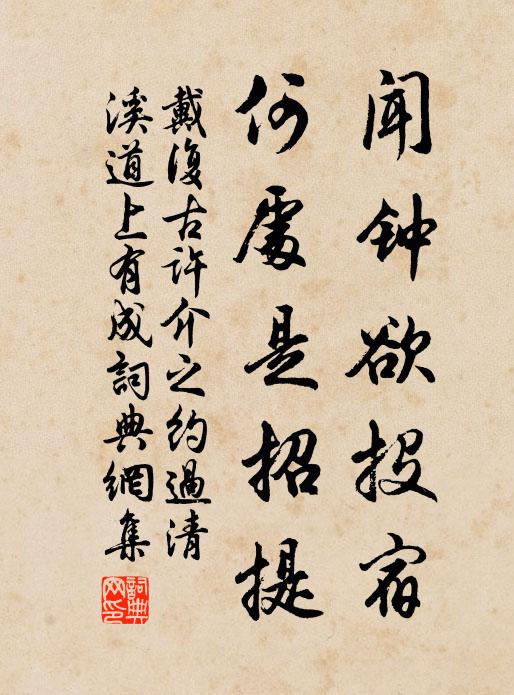 闻钟欲投宿
何處是招提
戴復古許介之約過清
溪道上有成詞典網集
詞典网印